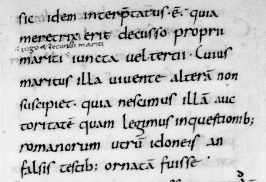 sic idem interp̄tatus · ē · quia
meretrix erit decusso proprii
iugo & secundi mariti
mariti iuncta uel tertii · Cuius
maritus illa uiuente alterā non
suscipiet · quia nescimus illā auc
toritatē quam legimus inquestionib;
romanorum utrū idoneis an
falsis testib; ornata fuisse ·